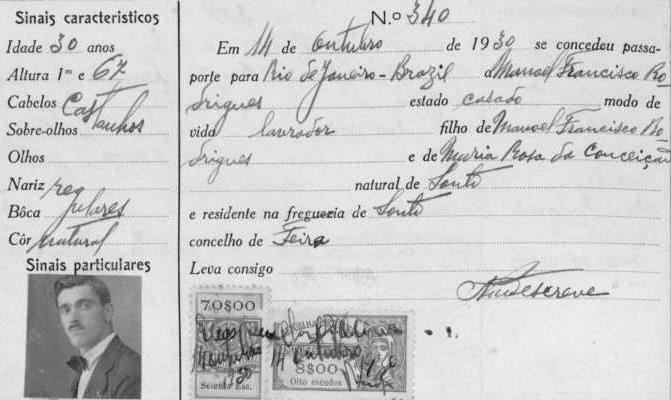 Sinais caracteristicos
Idade 30 anos
Altura 1m e 67
Cabelos Castanhos
Sobre-olhos
Olhos
Nariz regulares
Bôca
Côr natural
Sinais particulares
N.o 340
Em 14 de Outubro de 1930 se concedeu passa-
porte para Rio de Janeiro - Brazil a Manoel Francisco Ro-
drigues estado casado modo de
vida lavrador filho de Manoel Francisco Ro-
drigues e de Maria Rosa da Conceição
natural de Souto
e residente na freguezia de Souto
concelho de Feira
Leva consigo
70$00
Setenta Esc.
14 Outubro
1930
8$00
Oito escudos